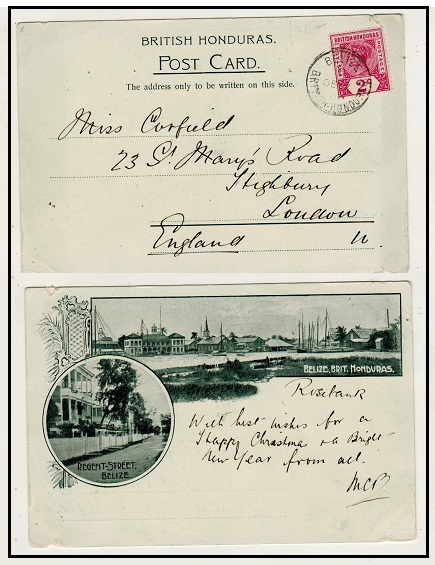 BRITISH HONDURAS.
POST CARD.
The address only to be written on this side.
BRITISH HONDURAS
POSTAGE
2D
Miss Corfield
23 St Mary's Road
Highbury
London
England N.
BELIZE, BRIT. HONDURAS.
REGENT-STREET,
BELIZE.
Rosebank
With best wishes for a
Happy Christmas & a Bright
New Year from all.
MCB